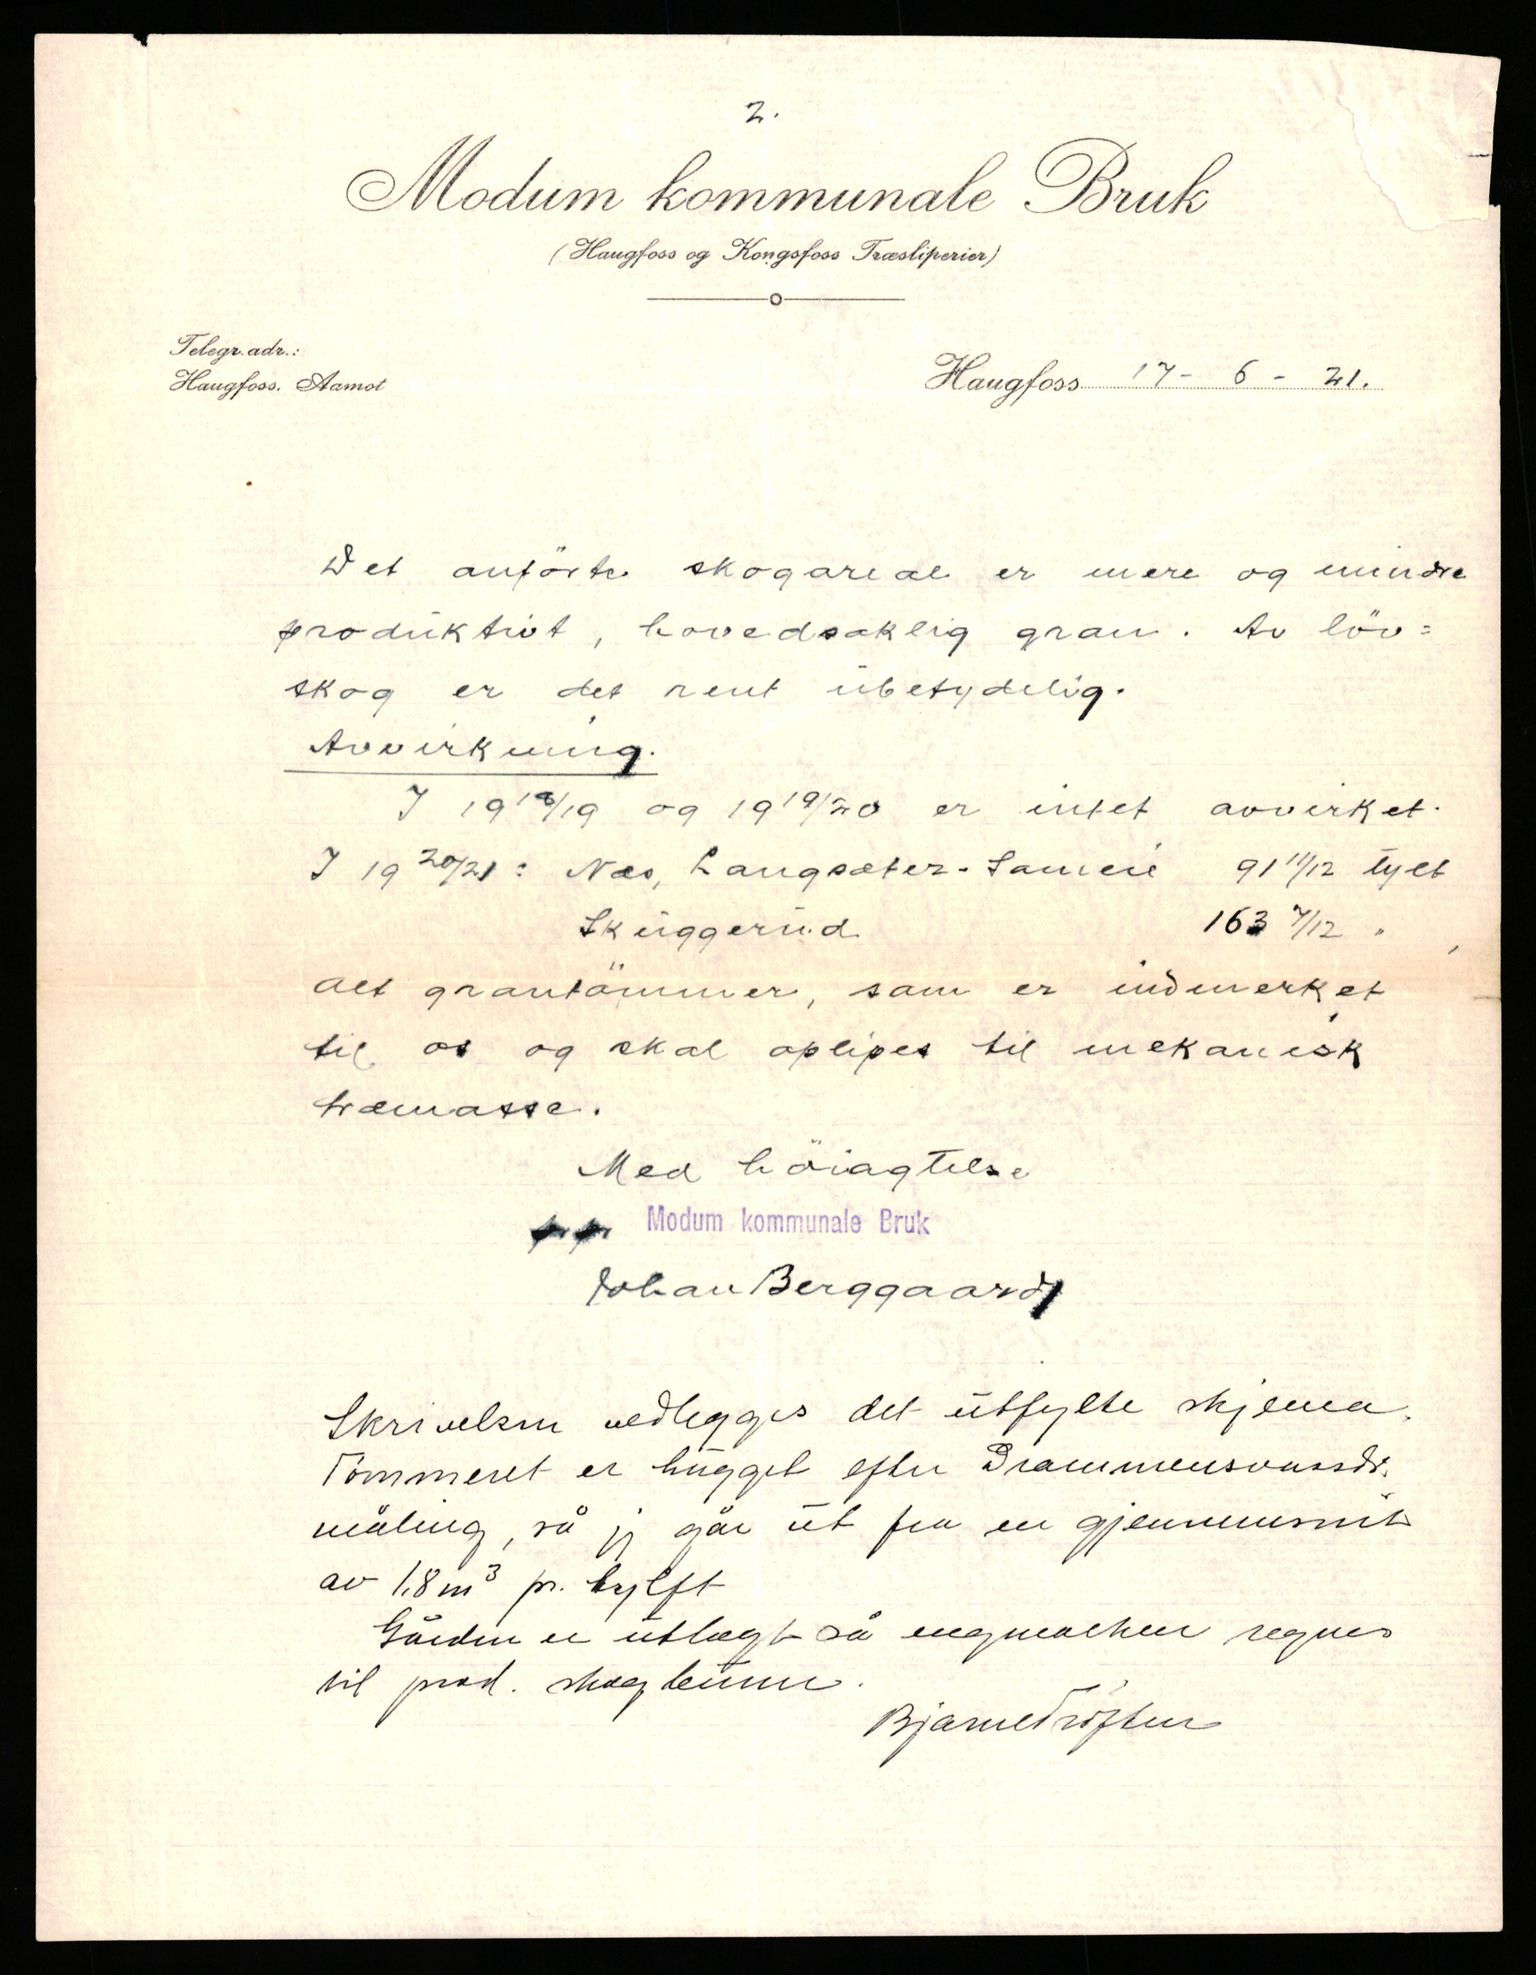 2.
Modum kommunale Bruk
(Haugfoss og Kongsfoss Træsliperier)
Telegr.adr.:
Haugfoss. Aamot
Haugfoss 17 - 6 - 21.
Det anförte skogareal er mere og mindre
produktivt, hovedsaklig gran. Av löv=
skog er det rent ubetydelig.
Avvirkning.
I 1918/19 og 1919/20 er intet avvirket.
I 1920/21: Næs, Langsæter-Sameie 91 11/12 tylt
Skuggerud 163 7/12 "
alt grantömmer, som er indmerket
til os og skal opslipes til mekanisk
træmasse.
Med höiagtelse
pr pr Modum kommunale Bruk
Johan Berggaard
Skrivelsen vedlegges det utfylte skjema.
Tömmeret er hugget efter Drammensvassdr.
måling, så jeg går ut fra en gjennemsnit
av 1,8 m³ pr. tylft
Gården er utlagt så engmarken regnes
til prod. skogbunn.
Bjarne Tröften